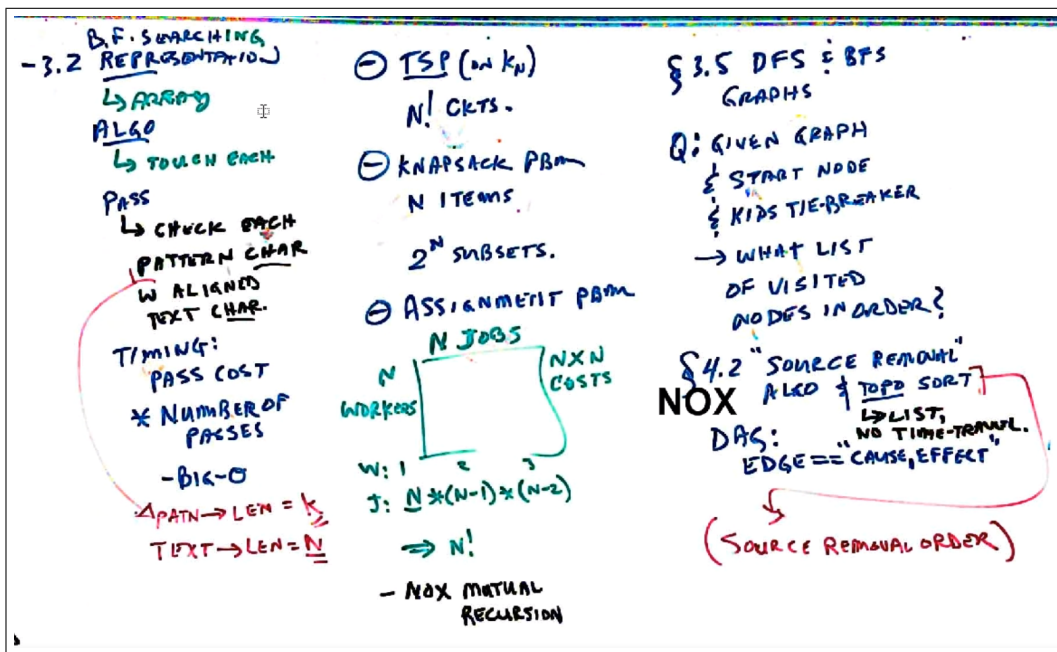 B.F. SEARCHING
-3.2 REPRESENTATION
↳ ARRAY
ALGO
↳ TOUCH EACH
PASS
↳ CHECK EACH
PATTERN CHAR
W ALIGNED
TEXT CHAR.
TIMING:
PASS COST
* NUMBER OF
PASSES
-BIG-O
PATN → LEN = K
TEXT → LEN = N
⊖ TSP (ON KN)
N! CKTS.
⊖ KNAPSACK PBM
N ITEMS
2^N SUBSETS.
⊖ ASSIGNMENT PBM
N JOBS
N
WORKERS
NXN
COSTS
W: 1 2 3
J: N*(N-1)*(N-2)
⇒ N!
- NOX MUTUAL
RECURSION
§3.5 DFS & BFS
GRAPHS
Q: GIVEN GRAPH
& START NODE
& KIDS TIE-BREAKER
→ WHAT LIST
OF VISITED
NODES IN ORDER?
§4.2 "SOURCE REMOVAL"
NOX ALGO & TOPO SORT
↳ LIST,
NO TIME-TRAVEL.
DAG:
EDGE == "CAUSE, EFFECT"
(SOURCE REMOVAL ORDER)